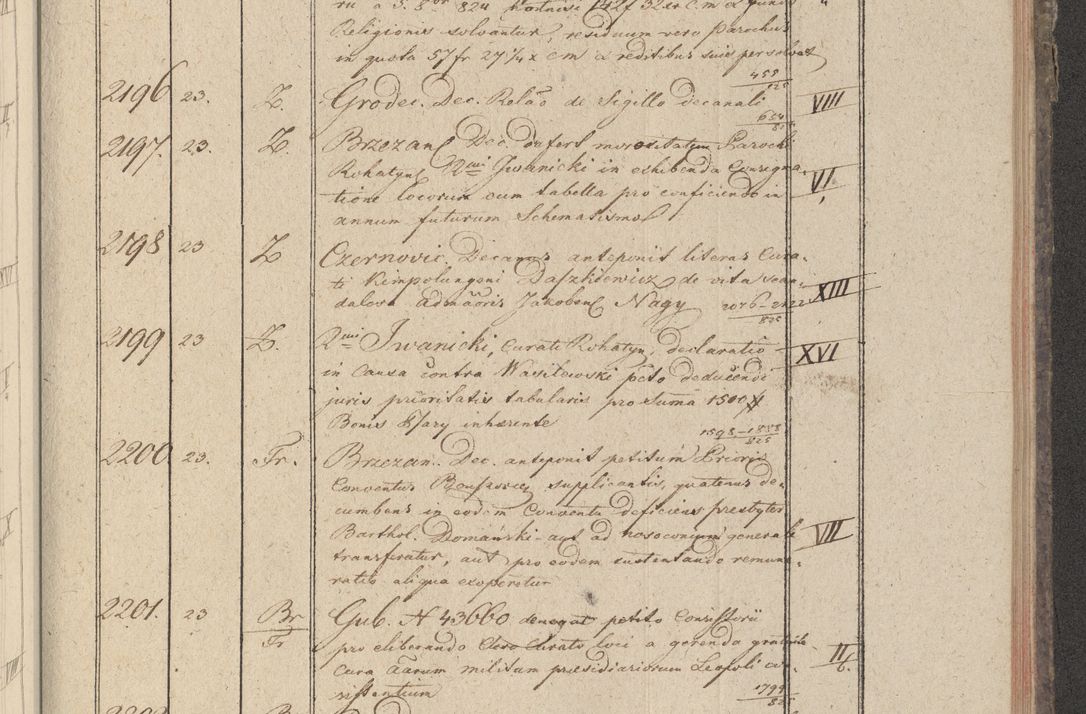 Religionis solvantur, residuum vero Parochus
in quota 57 fr 27 1/4 x CM a reditibus suis persolvat
459/825
2196 23. Z. Grodec. Dec. Relāo de Sigillo decanali VIII
654/82
2197. 23. Z. Brzezan Dec. defert morositatem Parochi
Rohatyn Lmi Iwanicki in exhibenda Consigna-
tione locorum cum tabella pro conficiendo in VI
annum futurum Schematismo
2198 23 Z Czernovic. Decanus anteponit literas Cura-
ti Kimpolungoni Daszkiewicz de vita scan-
dalosa admāaris Jakobeni Nagy 2076-2122/825 XIII
2199 23 Z. Lmi Iwanicki, Curati Rohatyn, declaratio XVI
in Causa contra Wasilewski pcto deducendi
juris prioritatis tabularis pro suma 1500 #
Bonis inhærente
1598-1888/825
2200 23. Fr. Brzezan. Dec. anteponit petitum Prioris
Conventus supplicantis, quatenus de-
cumbens in eodem Conventu deficiens presbyter
Barthol. Domański aut ad nosoconium generale VII
transferatur, aut pro eodem sustentando remune-
ratio aliqua exoperetur
2201. 23 Br/Fr Gub. N 43660 denegat petito Consistorii
pro eliberando Clero Curato loci a gerenda gratuita
cura āarum militum præsidiariorum Leopoli ex- II/6.
sistentium
1799/82